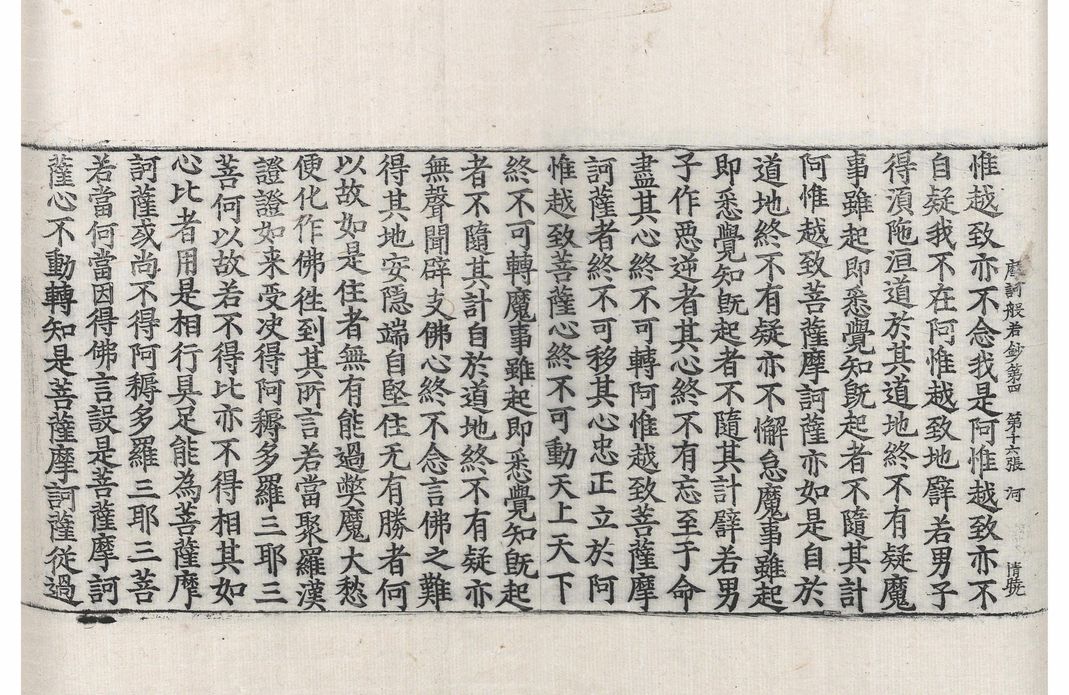 摩訶般若鈔第四　第十六張　河
惟越致亦不念我是阿惟越致亦不
自疑我不在阿惟越致地譬若男子
得湏陁洹道於其道地終不有疑魔
事雖起即悉覺知旣起者不隨其計
阿惟越致菩薩摩訶薩亦如是自於
道地終不有疑亦不懈怠魔事雖起
即悉覺知旣起者不隨其計譬若男
子作惡逆者其心終不有忘至于命
盡其心終不可轉阿惟越致菩薩摩
訶薩者終不可移其心忠正立於阿
惟越致菩薩心終不可動天上天下
終不可轉魔事雖起即悉覺知旣起
者不隨其計自於道地終不有疑亦
無聲聞辟支佛心終不念言佛之難
得其地安隱端自堅住无有勝者何
以故如是住者無有能過獘魔大愁
便化作佛徃到其所言若當聚羅漢
證證如来受决得阿耨多羅三耶三
菩何以故若不得比亦不得相其如
心比者用是相行具足能為菩薩摩
訶薩或尚不得阿耨多羅三耶三菩
若當何當因得佛言設是菩薩摩訶
薩心不動轉知是菩薩摩訶薩從過